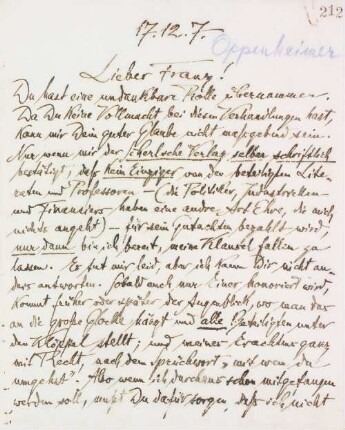 212
17.12.7.
Oppenheimer
Lieber Franz!
Du hast eine undankbare Rolle übernommen.
Da Du keine Vollmacht bei diesen Verhandlungen hast,
kann mir Dein guter Glaube nicht massgebend sein.
Nur wenn mir der Scherlsche Verlag selber schriftlich
bestätigt, daß kein einziger von den beteiligten Lite-
raten und Professoren – (die Politiker, Industriellen
und Finanziers haben eine andre Art Ehre, die mich
nichts angeht) – für sein Gutachten bezahlt wird
nur dann bin ich bereit, meine Klausel fallen zu
lassen. Es tut mir leid, aber ich kann Dir nicht an-
ders antworten. Sobald auch nur Einer honoriert wird
kommt früher oder später der Augenblick, wo man das
an die große Glocke hängt und alle Beteiligten unter
den Klöppel stellt; und meines Erachtens ganz
mit Recht, nach dem Sprüchwort „mit wem du
umgehst". Also wenn ich durchaus schon mitgefangen
werden soll, mußt Du dafür sorgen, daß ich nicht